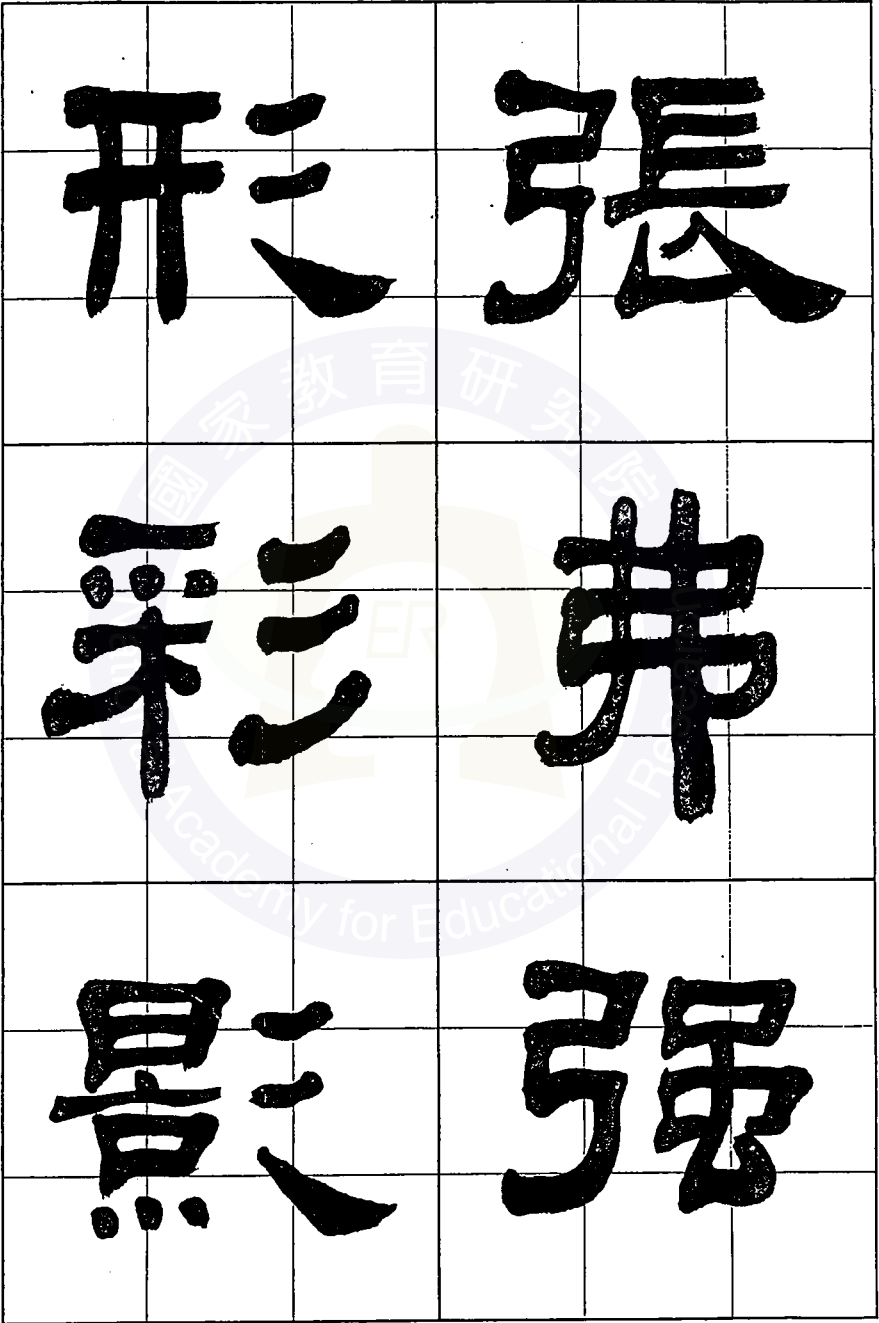 張弗强
形彩影
國家教育研究院
National Academy for Educational Research